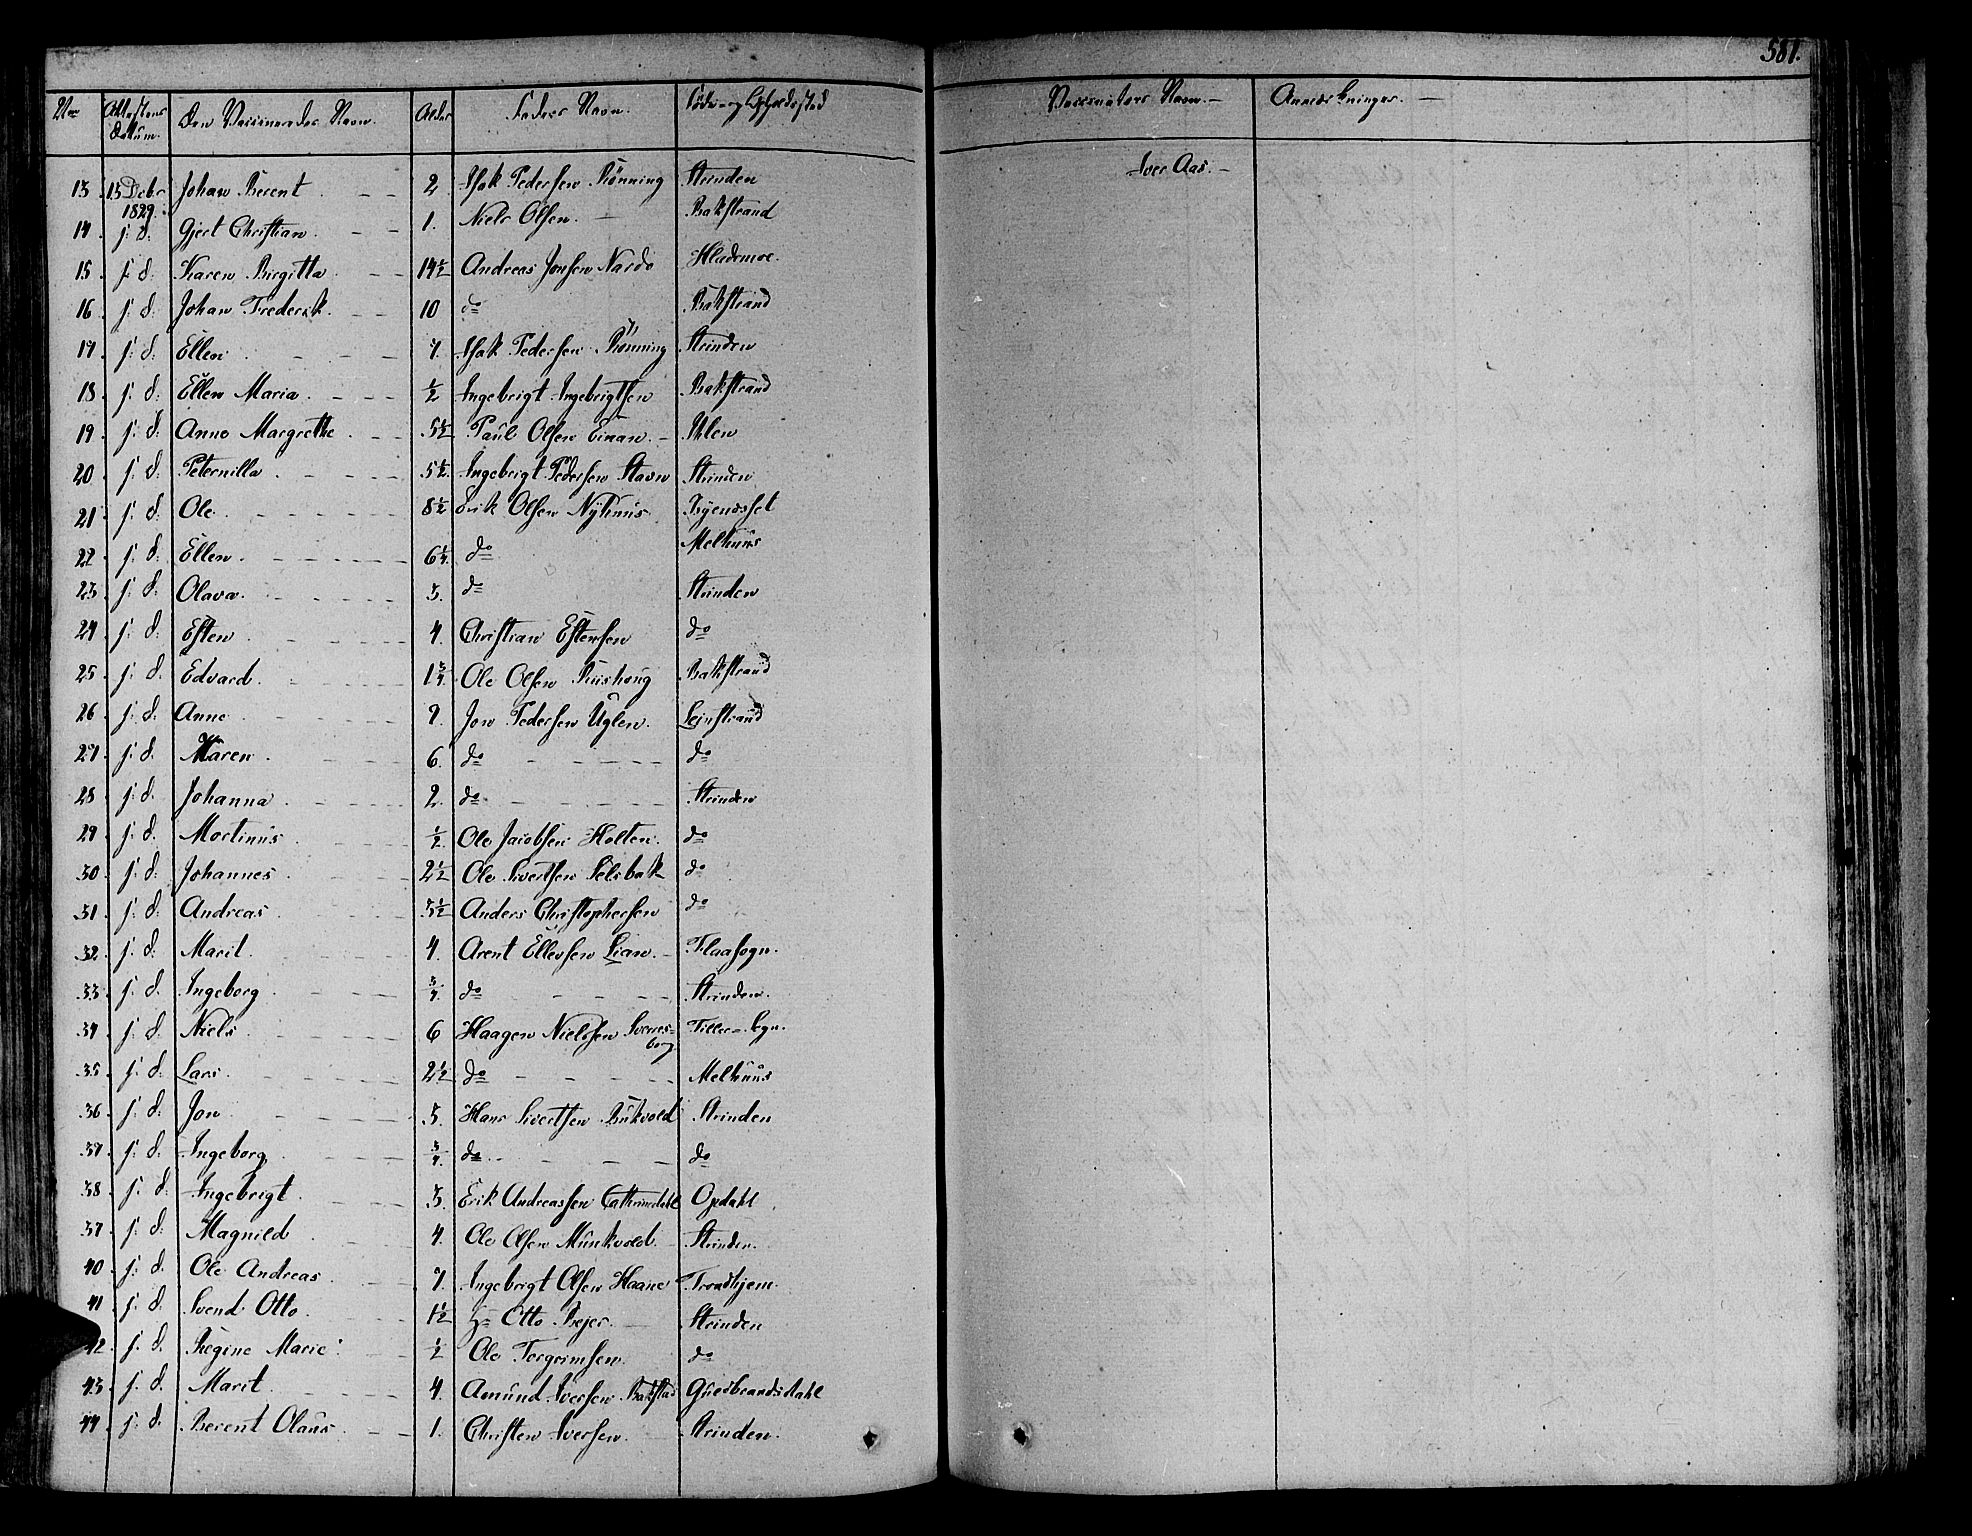 581.
No Attestens Datum. Den Vaccineredes Navn. Alder Faders Navn. Føde- og Opholdssted Vaccinators Navn.- Anmærkninger.-
13. 15 Debr 1829. Johan Berent. 2 Isak Pedersen Rønning Strinden Iver Aas.-
14. j: d: Gjert Christian. 1. Niels Olsen. Bakstrand
15. j: d: Karen Birgitta. 14½ Andreas Jonsen Nardo Hlademoe.
16. j: d: Johan Frederik. 10 do Bakstrand
17. j: d: Ellen 7. Isak Pedersen Rønning Strinden
18. j: d: Ellen Maria. ½ Ingebrigt Ingebrigtsen Bakstrand
19. j: d: Anne Margrethe. 5½ Paul Olsen Einan.
20. j: d: Peternilla. 5½ Ingebrigt Pedersen Stavn Strinden
21. j: d: Ole. 8½ Erik Olsen Nyhuus. Byenesset
22. j: d: Ellen. do Melhuus
23. j: d: Olava. 3. do Strinden
24. j: d: Esten. 4. Christian Estensen do
25. j: d: Edvard. 1¾ Ole Olsen Bakstrand
26. j: d: Anne. 9. Jon Pedersen Uglen. Leinstrand
27. j: d: Maren. 6. do do
28. j: d: Johanna. 2. do Strinden
29. j: d: Mortinus. ½ Ole Jacobsen Holten. do
30. j: d: Johannes. 2½ Ole Sivertsen Selsbak do
31. j: d: Andreas. 3½ Anders Christophersen do
32. j: d: Marit. 4. Arent Ellevsen Lian. Flaasogn.
33. j: d: Ingeborg. ¾ do Strinden.
34. j: d: Niels. 6 Haagen Nielssen Sverres=borg Tiller=Sogn.
35. j: d: Lars. 2½ do Melhuus
36. j: d: Jon. 3. Hans Sivertsen Bukvold Strinden
37. j: d: Ingeborg. ¾ do do
38. j: d: Ingebrigt. 3. Erik Andreassen Cathrindahl Opdahl
39. j: d: Magnild. 4. Ole Olsen Munkvold. Strinden.
40. j: d: Ole Andreas. 7. Ingebrigt Olsen Haane Trondhjem.
41. j: d: Svend Otto. 1½ Hr Otto Bejer. Strinden
42. j: d: Regine Marie. ½ Ole Torgrimsen. do
43. j: d: Marit. 4. Amund Iversen Bakstad Guldbrandsdahl
44. j: d: Berent Olaus. 1. Christen Iversen. Strinden.